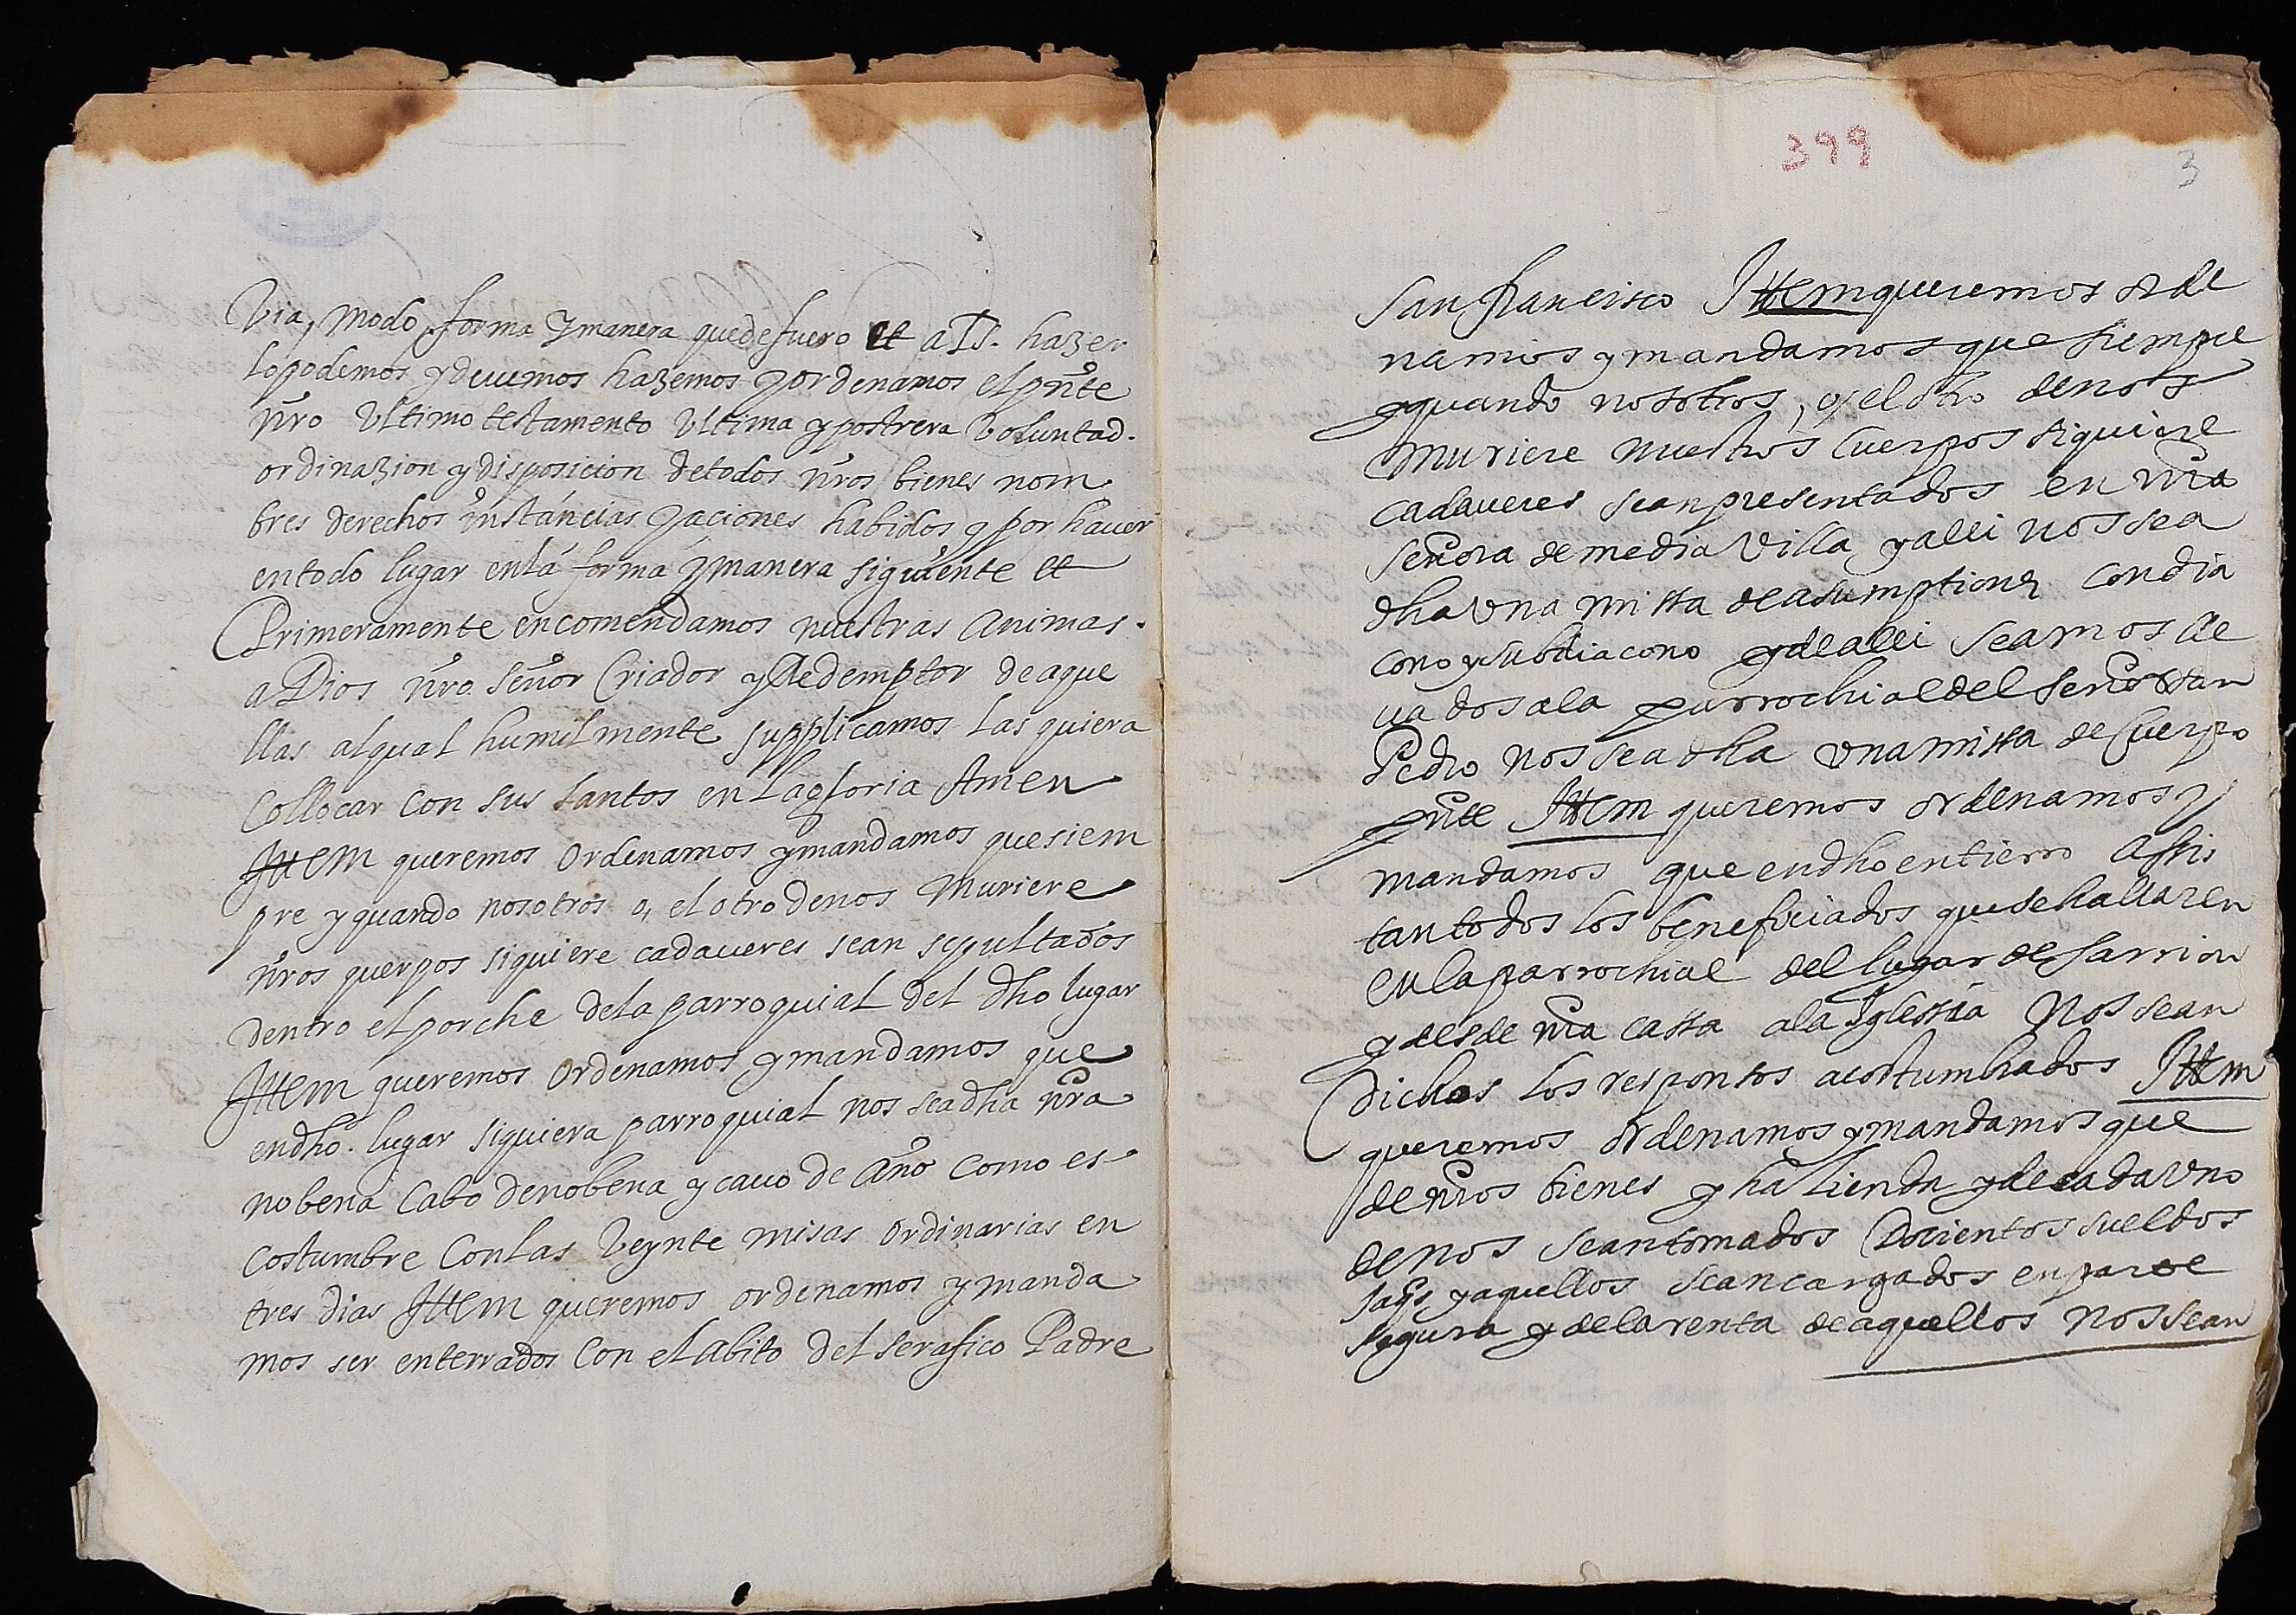 Via, modo, forma y manera que de fuero et als. hazer
lo podemos y deuemos hazemos y ordenamos el pñte
ñro Ultimo testamento Ultima y postrera Voluntad.
ordinazion y disposicion de todos ñros bienes nom
bres derechos instáncias y aciones habidos y por hauer
en todo lugar en lá forma y manera siguiente et
Primeramente encomendamos nuestras animas.
a Dios ñro Señor Criador y Redemptor de aque
llas al qual humilmente supplicamos las quiera
Collocar con sus santos en la gloria Amen
Ittem queremos Ordenamos y mandamos que siem
pre y quando nosotros o, el otro de nos Muriere
ñros querpos siquiere cadaueres sean sepultados
dentro el porche de la parroquial del dho lugar
Ittem queremos Ordenamos y mandamos que
en dho. lugar siquiera parroquial nos sea dha ñra
nobena Cabo de nobena y cauo de Año como es
costumbre Con las Veynte misas ordinarias en
tres dias Ittem queremos ordenamos y manda
mos ser enterrados Con el abito del serafico Padre
399
3
San francisco Ittem queremos orde
namos y mandamos que siempre
y quando nosotros, o, el otro de nos
muriere nuestros Cuerpos siquiere
cadaueres sean presentados en ñra
señora de media Villa y alli nos sea
dha Una missa de asumptione con dia
cono y subdiacono y de alli seamos lle
uados a la parrochial del señor san
Pedro nos sea dha una missa de Cuerpo
pñte Ittem queremos ordenamos y
mandamos que en dho entierro assis
tan todos los beneficiados que se hallaren
en la parrochial del lugar de Sarrion
y desde ñra cassa a la Iglessia nos sean
dichos los responsos acostumbrados Ittem
queremos ordenamos y mandamos que
de ñros bienes y hazienda y de cada Uno
de nos sean tomados Docientos sueldos
jaqs. y aquellos sean cargados en parte
segura y de la renta de aquellos nos sean